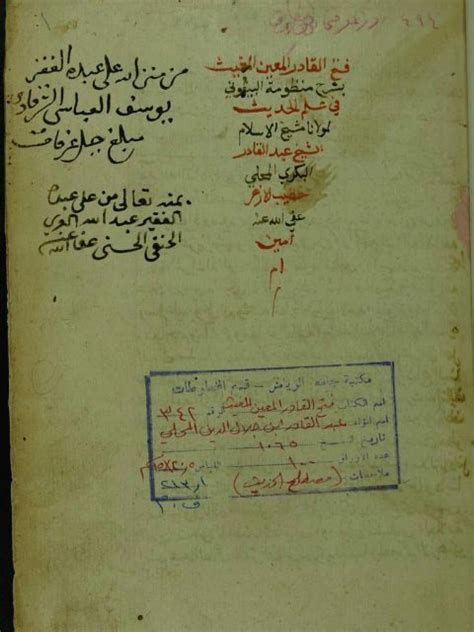 ٤٩٤
فتح القادر المعين المغيث
بشرح منظومة البيقوني
في علم الحديث
لمولانا شيخ الاسلام
الشيخ عبد القادر
البكري المحلي
خطيب الازهر
عفى الله عنه
آمين
ام
من منن الله على عبده الفقير
يوسف العباسي
مبلغ جبل عرفات
بمنه تعالى من على عبده
الفقير عبد الله
الحنفي الحسني عفا الله عنه
مكتبة جامعة الرياض - قسم المخطوطات
اسم الكتاب فتح القادر المعين المغيث ٣٤٢
اسم المؤلف عبد القادر بن جلال الدين المحلي
تاريخ النسخ ١٠٦٥
عدد الاوراق ١٠
ملاحظات (مصطلح الحديث)
٢١٣٫١